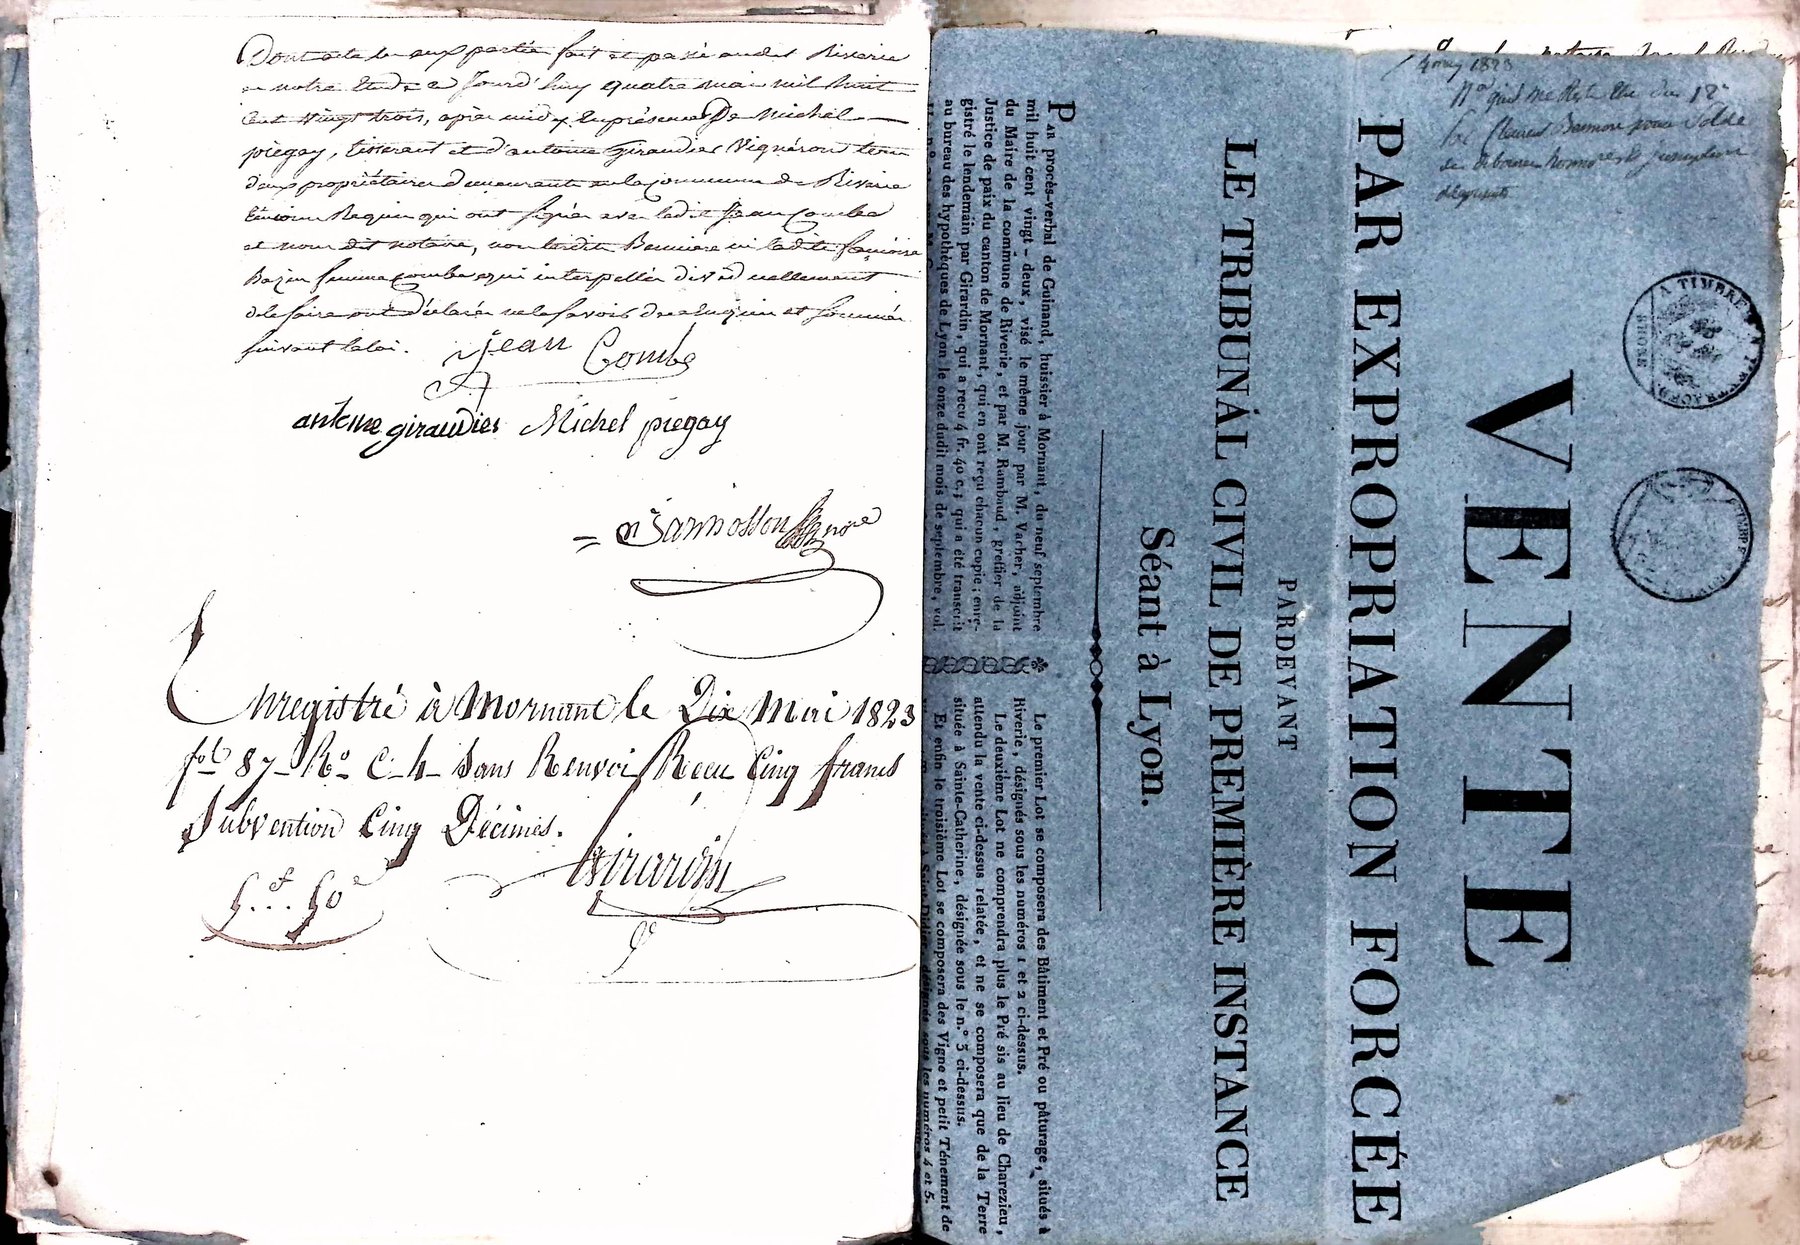 Dont acte lu aux parties fait et passé audit Riverie
en notre Etude ce Jourd'huy quatre mai mil huit
cent vingt trois, après midy En présence De Michel
piegay, tisserant et d'antoine Giraudier Vigneron tous
deux propriétaires demeurants en la Commune de Riverie
témoins Requis qui ont signés avec ledit Jean Combe
et nous dit notaire, non ladite
Bazin femme Combe qui interpellés
de le faire ont déclarés ne le savoir de ce Enquis et sommés
suivant la loi.
Jean Combe
antoine giraudier Michel piegay
Enregistré à Mornant le Dix Mai 1823
fol. 87 Ro C. 4 Sans Renvoi Reçu Cinq francs
Subvention Cinq Décimes.
Girardin
5.f 50c
4 may 1823
VENTE
PAR EXPROPRIATION FORCÉE
PARDEVANT
LE TRIBUNAL CIVIL DE PREMIÈRE INSTANCE
Séant à Lyon.
PAR procès-verbal de Guinand, huissier à Mornant, du neuf septembre
mil huit cent vingt-deux, visé le même jour par M. Vacher, adjoint
du Maire de la commune de Riverie, et par M. Rambaud, greffier de la
Justice de paix du canton de Mornant, qui en ont reçu chacun copie; enre-
gistré le lendemain par Girardin, qui a reçu 4 fr. 40 c.; qui a été transcrit
au bureau des hypothèques de Lyon le onze dudit mois de septembre, vol
Le premier Lot se composera des Bâtiment et Pré ou pâturage, situés à
Riverie, désignés sous les numéros 1 et 2 ci-dessus.
Le deuxième Lot ne comprendra plus le Pré sis au lieu de Charezieu,
attendu la vente ci-dessus relatée, et ne se composera que de la Terre
située à Sainte-Catherine, désignée sous le n.° 3 ci-dessus.
Et enfin le troisième Lot se composera des Vigne et petit Ténement de
désignés sous les numéros 4 et 5.
A TIMBRER
RHONE